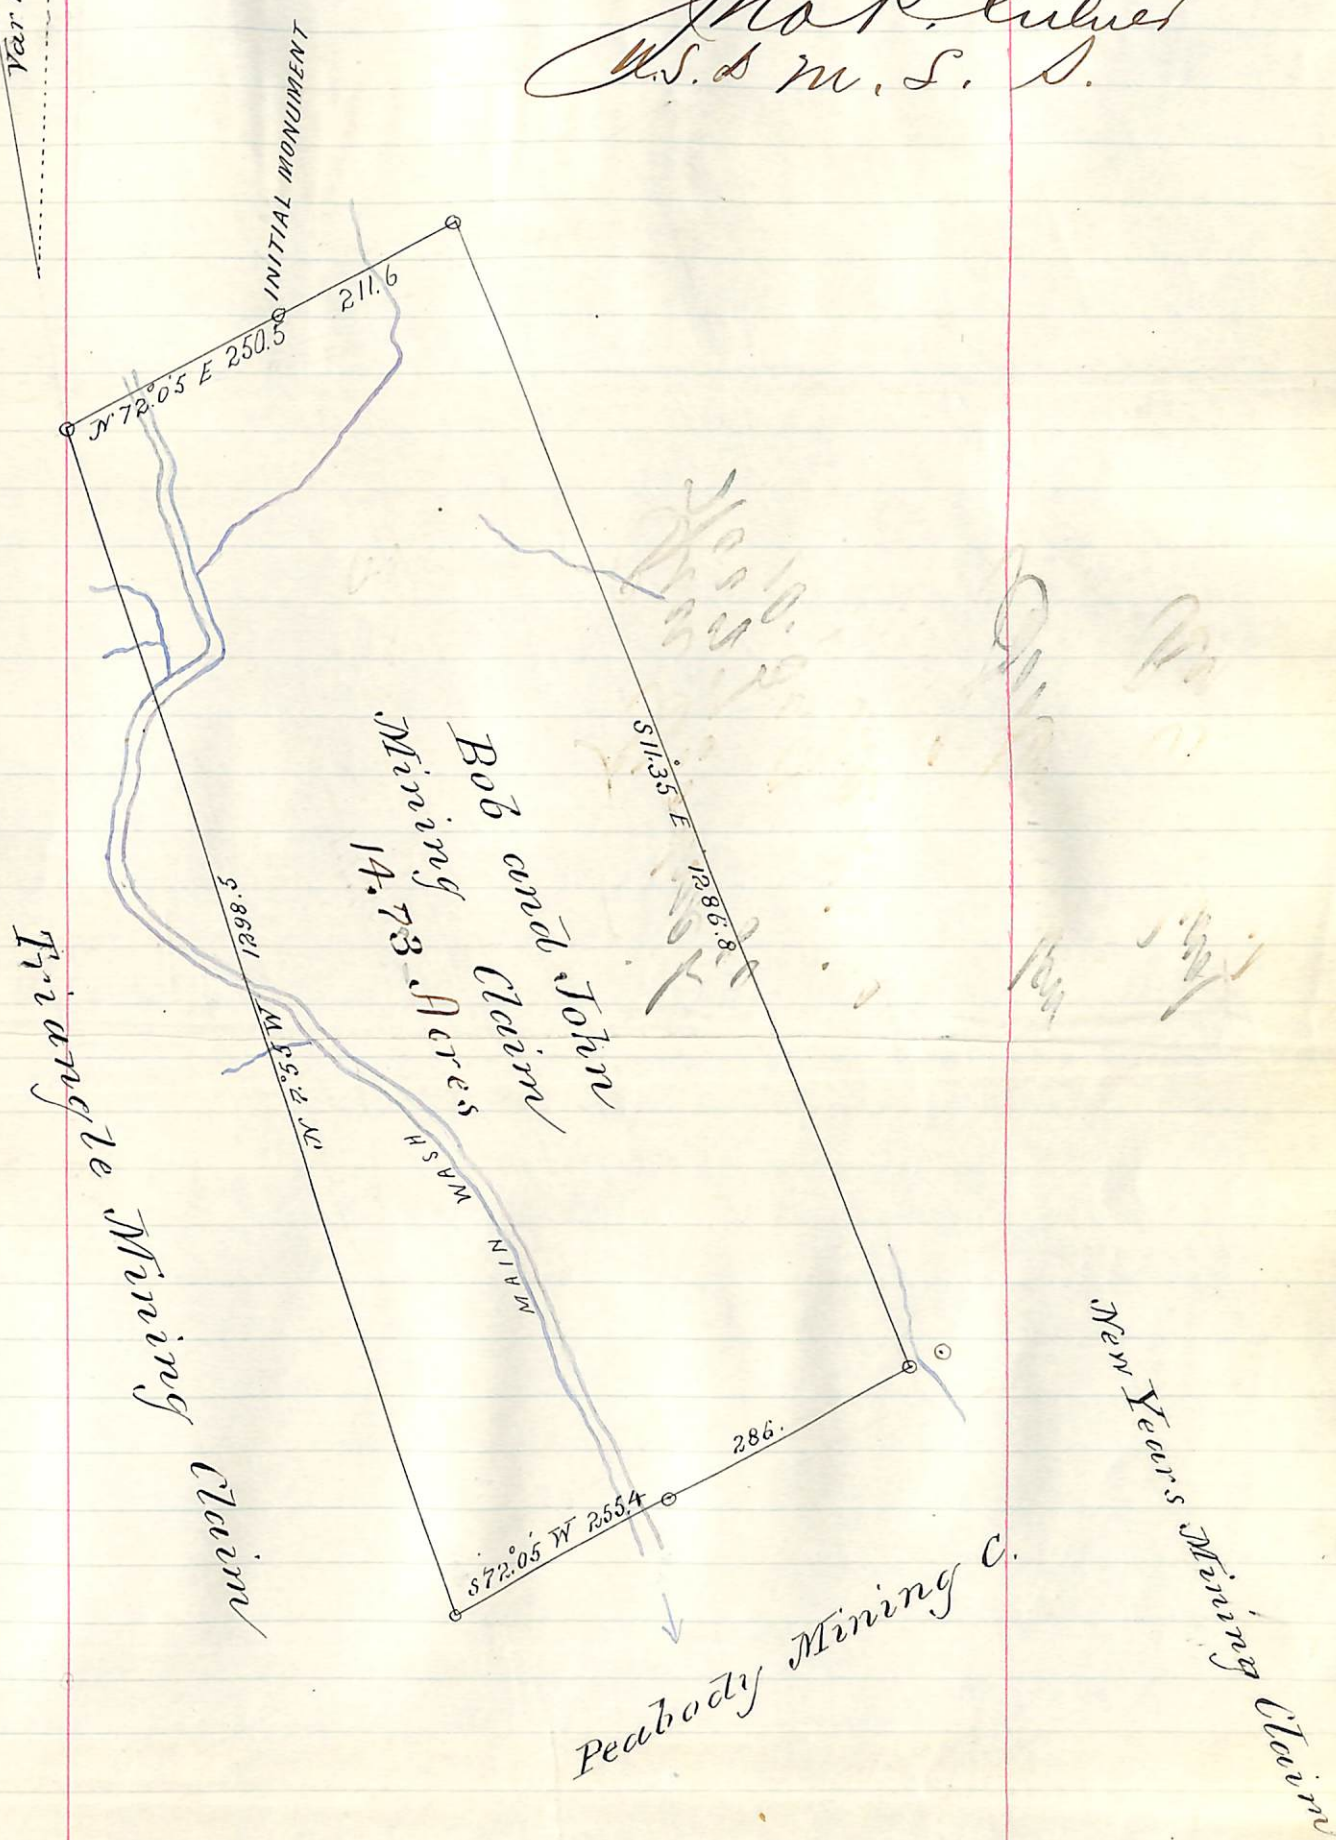 U.S. D M. S. S.
Var
INITIAL MONUMENT
211.6
N 72.°05 E 250.5
S 11.°35 E 1286.8
Bob and John
Mining Claim
14.73 Acres
1298.5
N 7.°55 W
WASH
MAIN
286.
S 72.°05' W 255.4
Triangle Mining Claim
Peabody Mining C.
New Years Mining Claim